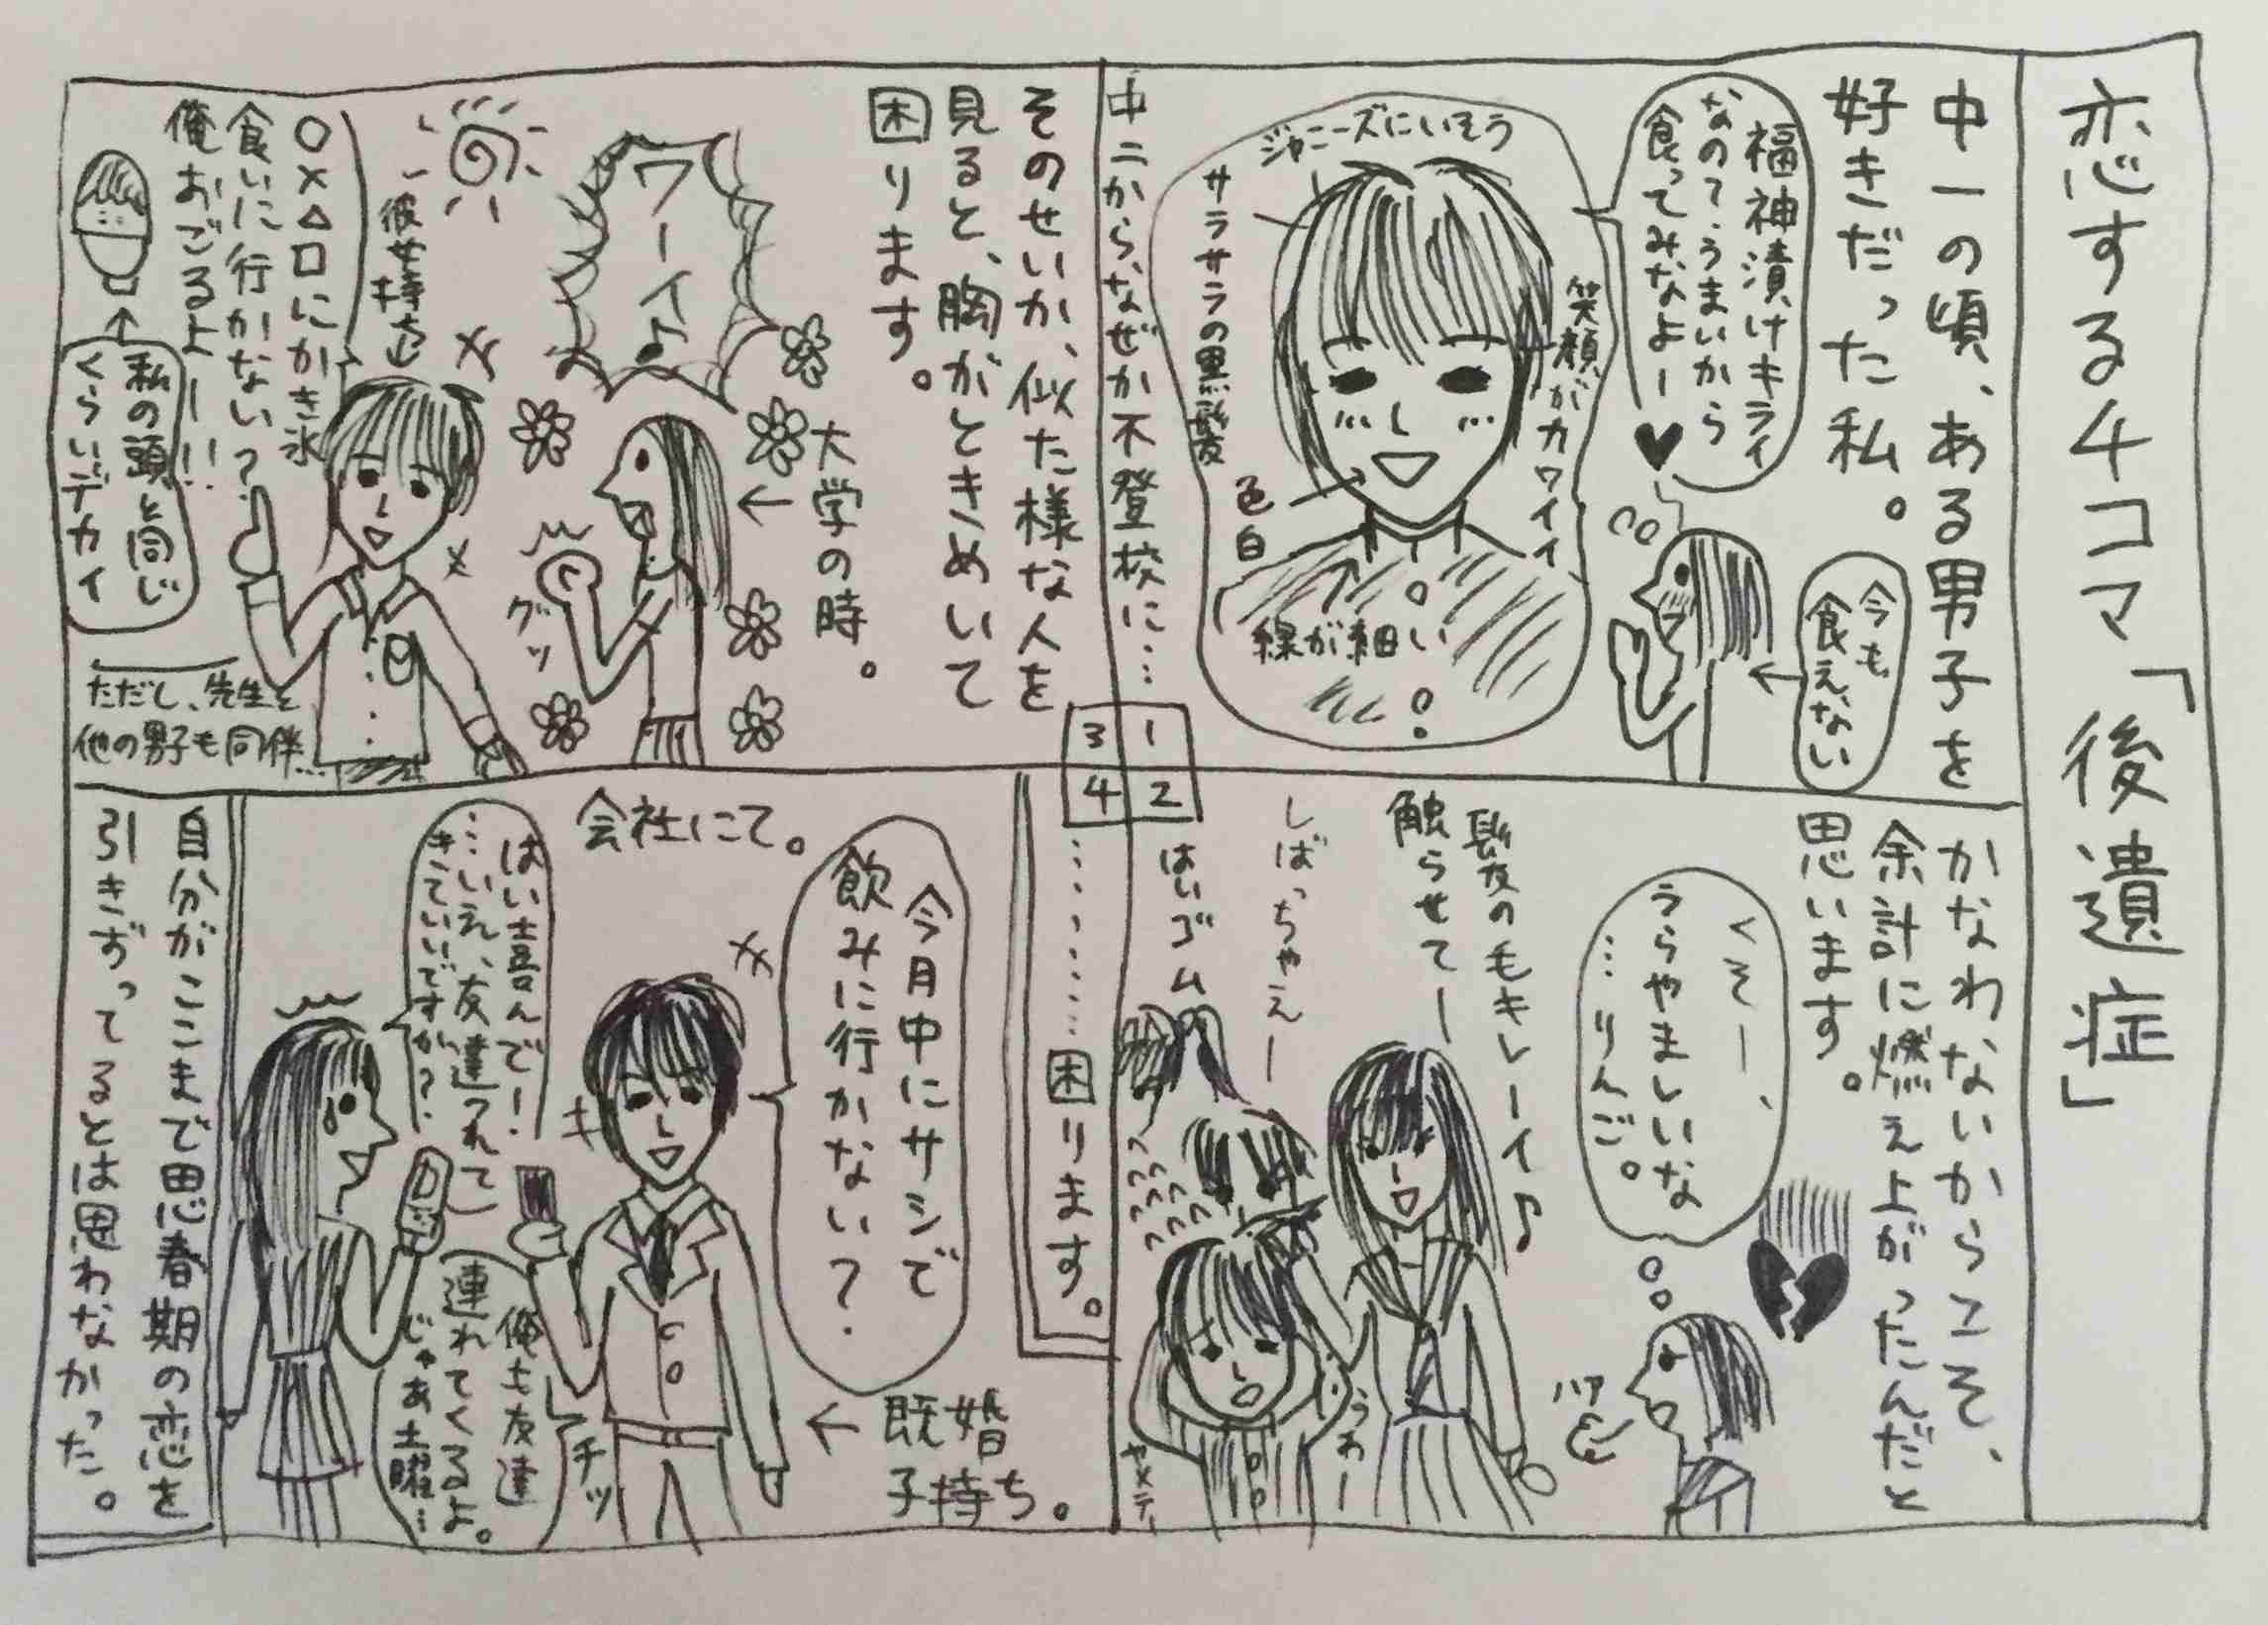 恋する4コマ「後遺症」
中一の頃、ある男子を
好きだった私。
福神漬けキライ
なの？うまいから
食ってみなよー
今も
食えない
ジャニーズにいそう
笑顔がカワイイ
サラサラの黒髪
色白
線が細い
中二から、なぜか不登校に…
1
2
3
4
かなわないからこそ、
余計に燃え上がったんだと
思います。
くそー、
うらやましいな
…りんご。
ハア
髪の毛キレーイ♪
触らせてー
しばっちゃえー
はいゴム
うわー
ヤメテー
そのせいか、似た様な人を
見ると、胸がときめいて
困ります。
大学の時。
ワーイ♪
グッ
彼女持ち
○×△□にかき氷
食いに行かない？
俺おごるよー!!
私の頭と同じ
くらいデカイ
ただし、先生と
他の男子も同伴…
………困ります。
会社にて。
今月中にサシで
飲みに行かない？
既婚
子持ち。
はい喜んで！
…いえ、友達つれて
きていいですか？
チッ
俺も友達
連れてくるよ。
じゃあ土曜…
自分がここまで思春期の恋を
引きずってるとは思わなかった。